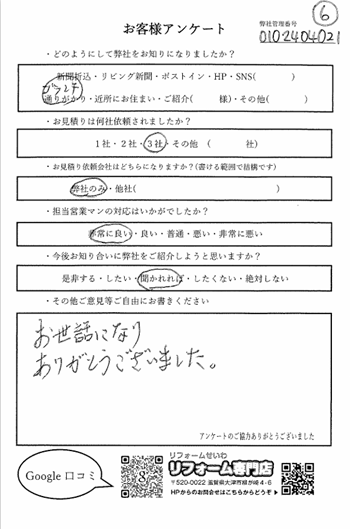 ⑥
お客様アンケート
弊社管理番号
0102404021
・どのようにして弊社をお知りになりましたか?
新聞折込・リビング新聞・ポストイン・HP・SNS( )
通りがかり・近所にお住まい・ご紹介( 様)・その他( )
・お見積りは何社依頼されましたか?
1社・2社・3社・その他 ( 社)
・お見積り依頼会社はどちらになりますか?(書ける範囲で結構です)
弊社のみ・他社( )
・担当営業マンの対応はいかがでしたか?
非常に良い・良い・普通・悪い・非常に悪い
・今後お知り合いに弊社をご紹介しようと思いますか?
是非する・したい・聞かれれば・したくない・絶対しない
・その他ご意見等ご自由にお書きください
お世話になり
ありがとうございました。
アンケートのご協力ありがとうございました
Google 口コミ
リフォームせいわ
リフォーム専門店
〒520-0022 滋賀県大津市柳が崎4-6
HPからのお問合せはこちらからどうぞ